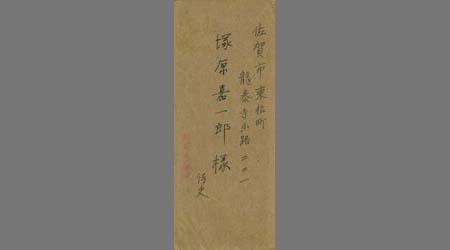 佐賀市東松町
龍泰寺小路二二一
塚原嘉一郎様
侍史